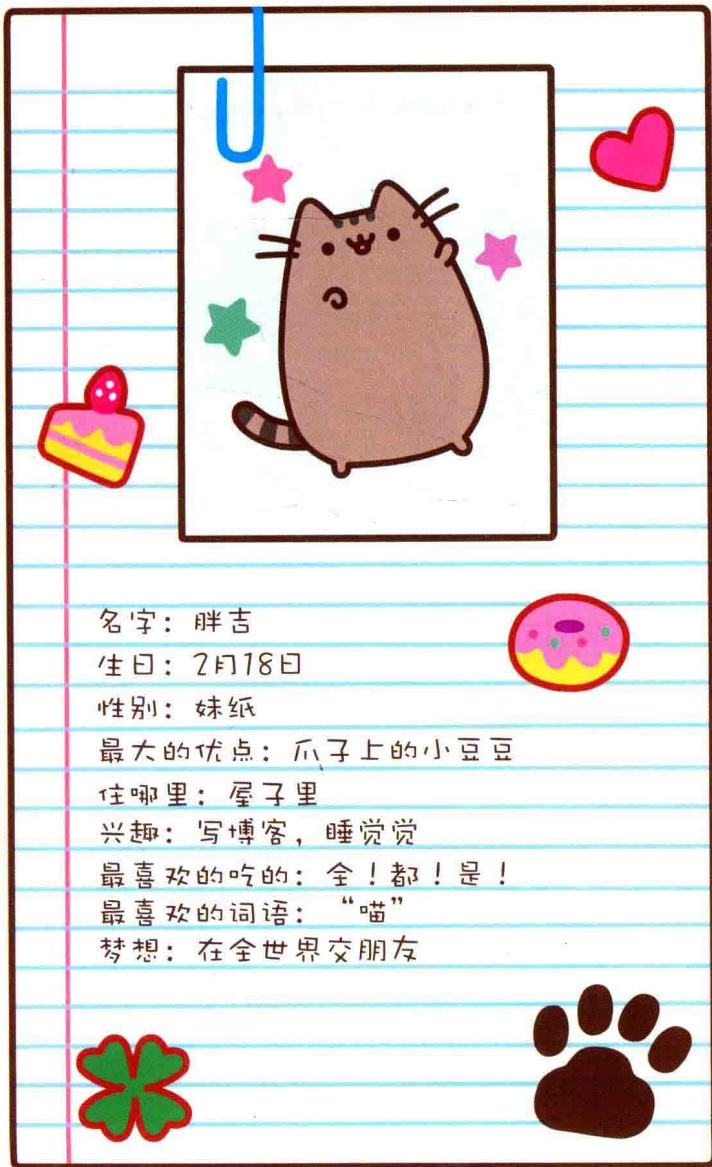 名字：胖吉
生日：2月18日
性别：妹纸
最大的优点：爪子上的小豆豆
住哪里：屋子里
兴趣：写博客，睡觉觉
最喜欢的吃的：全！都！是！
最喜欢的词语：“喵”
梦想：在全世界交朋友